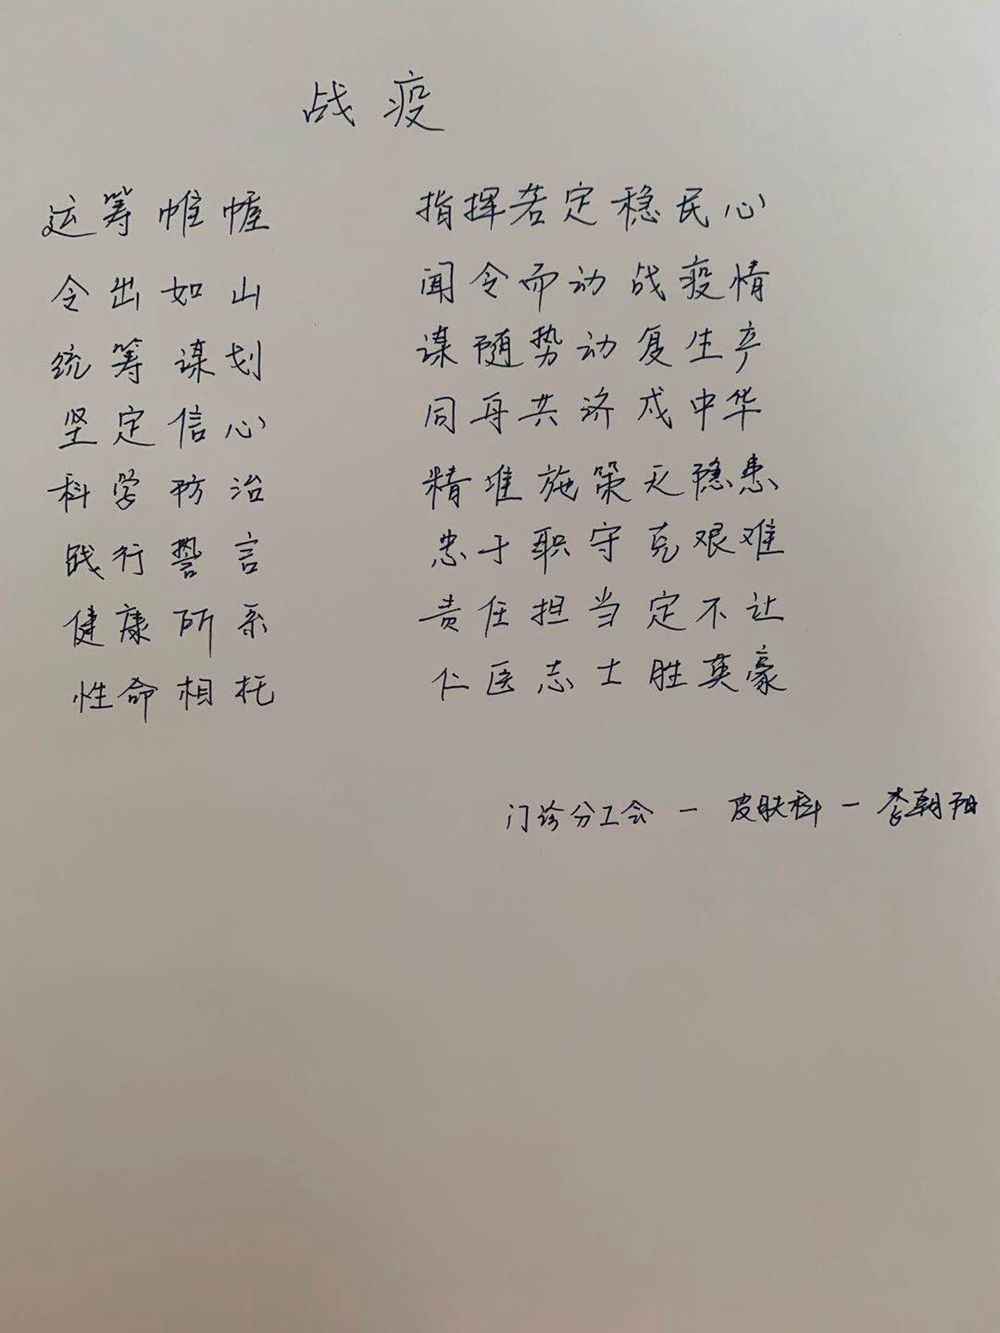 战疫
运筹帷幄 指挥若定稳民心
令出如山 闻令而动战疫情
统筹谋划 谋随势动复生产
坚定信心 同舟共济成中华
科学防治 精准施策无隐患
践行誓言 忠于职守克艰难
健康所系 责任担当定不让
性命相托 仁医志士胜英豪
门诊分工会 — 皮肤科 — 李朝阳